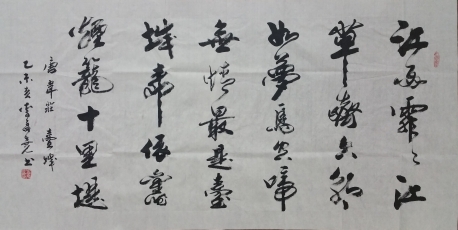 江雨霏〻江
草齊六朝
如夢鳥空啼
無情最是臺
城柳依舊
煙籠十里堤
唐韋莊 臺城
乙未 书